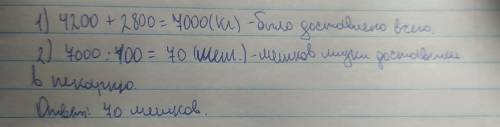 1) 4200 + 2800 = 7000 (кг) - было доставлено всего.
2) 7000 : 100 = 70 (меш.) - мешков муки доставили
в пекарню.
Ответ: 70 мешков.